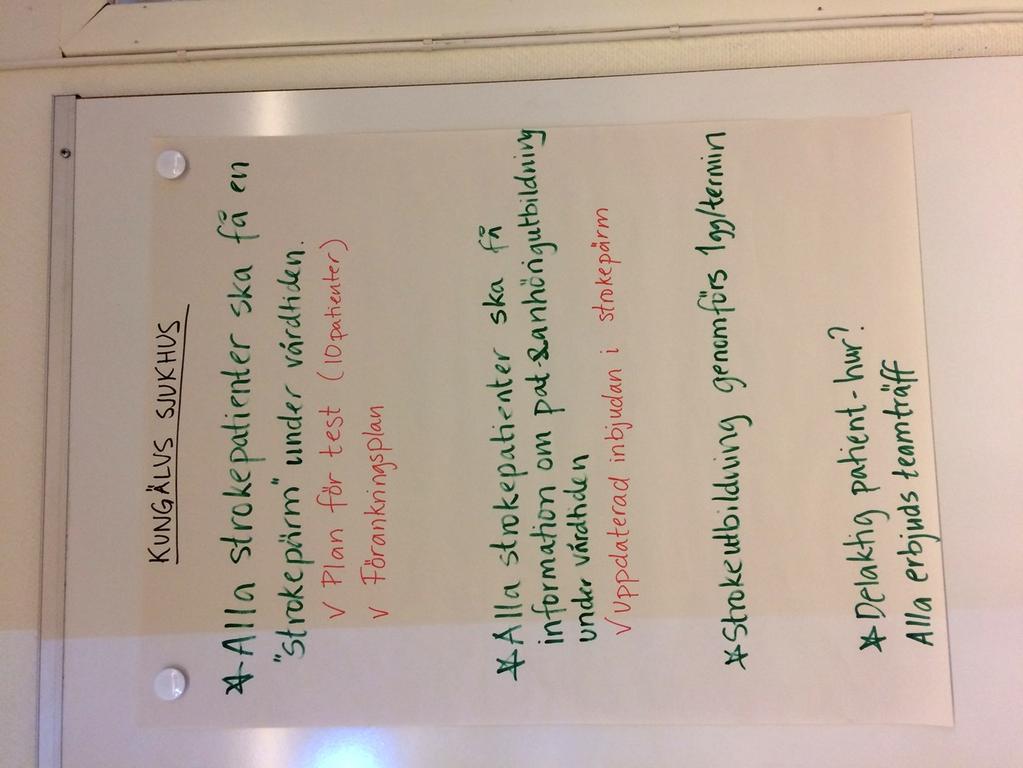 KUNGÄLVS SJUKHUS
* Alla strokepatienter ska få en
"strokepärm" under vårdtiden.
√ Plan för test (10 patienter)
√ Förankringsplan
* Alla strokepatienter ska få
information om pat-&anhörigutbildning
under vårdtiden
√ Uppdaterad inbjudan i strokepärm
* Strokeutbildning genomförs 1gg/termin
* Delaktig patient-hur?
Alla erbjuds teamträff